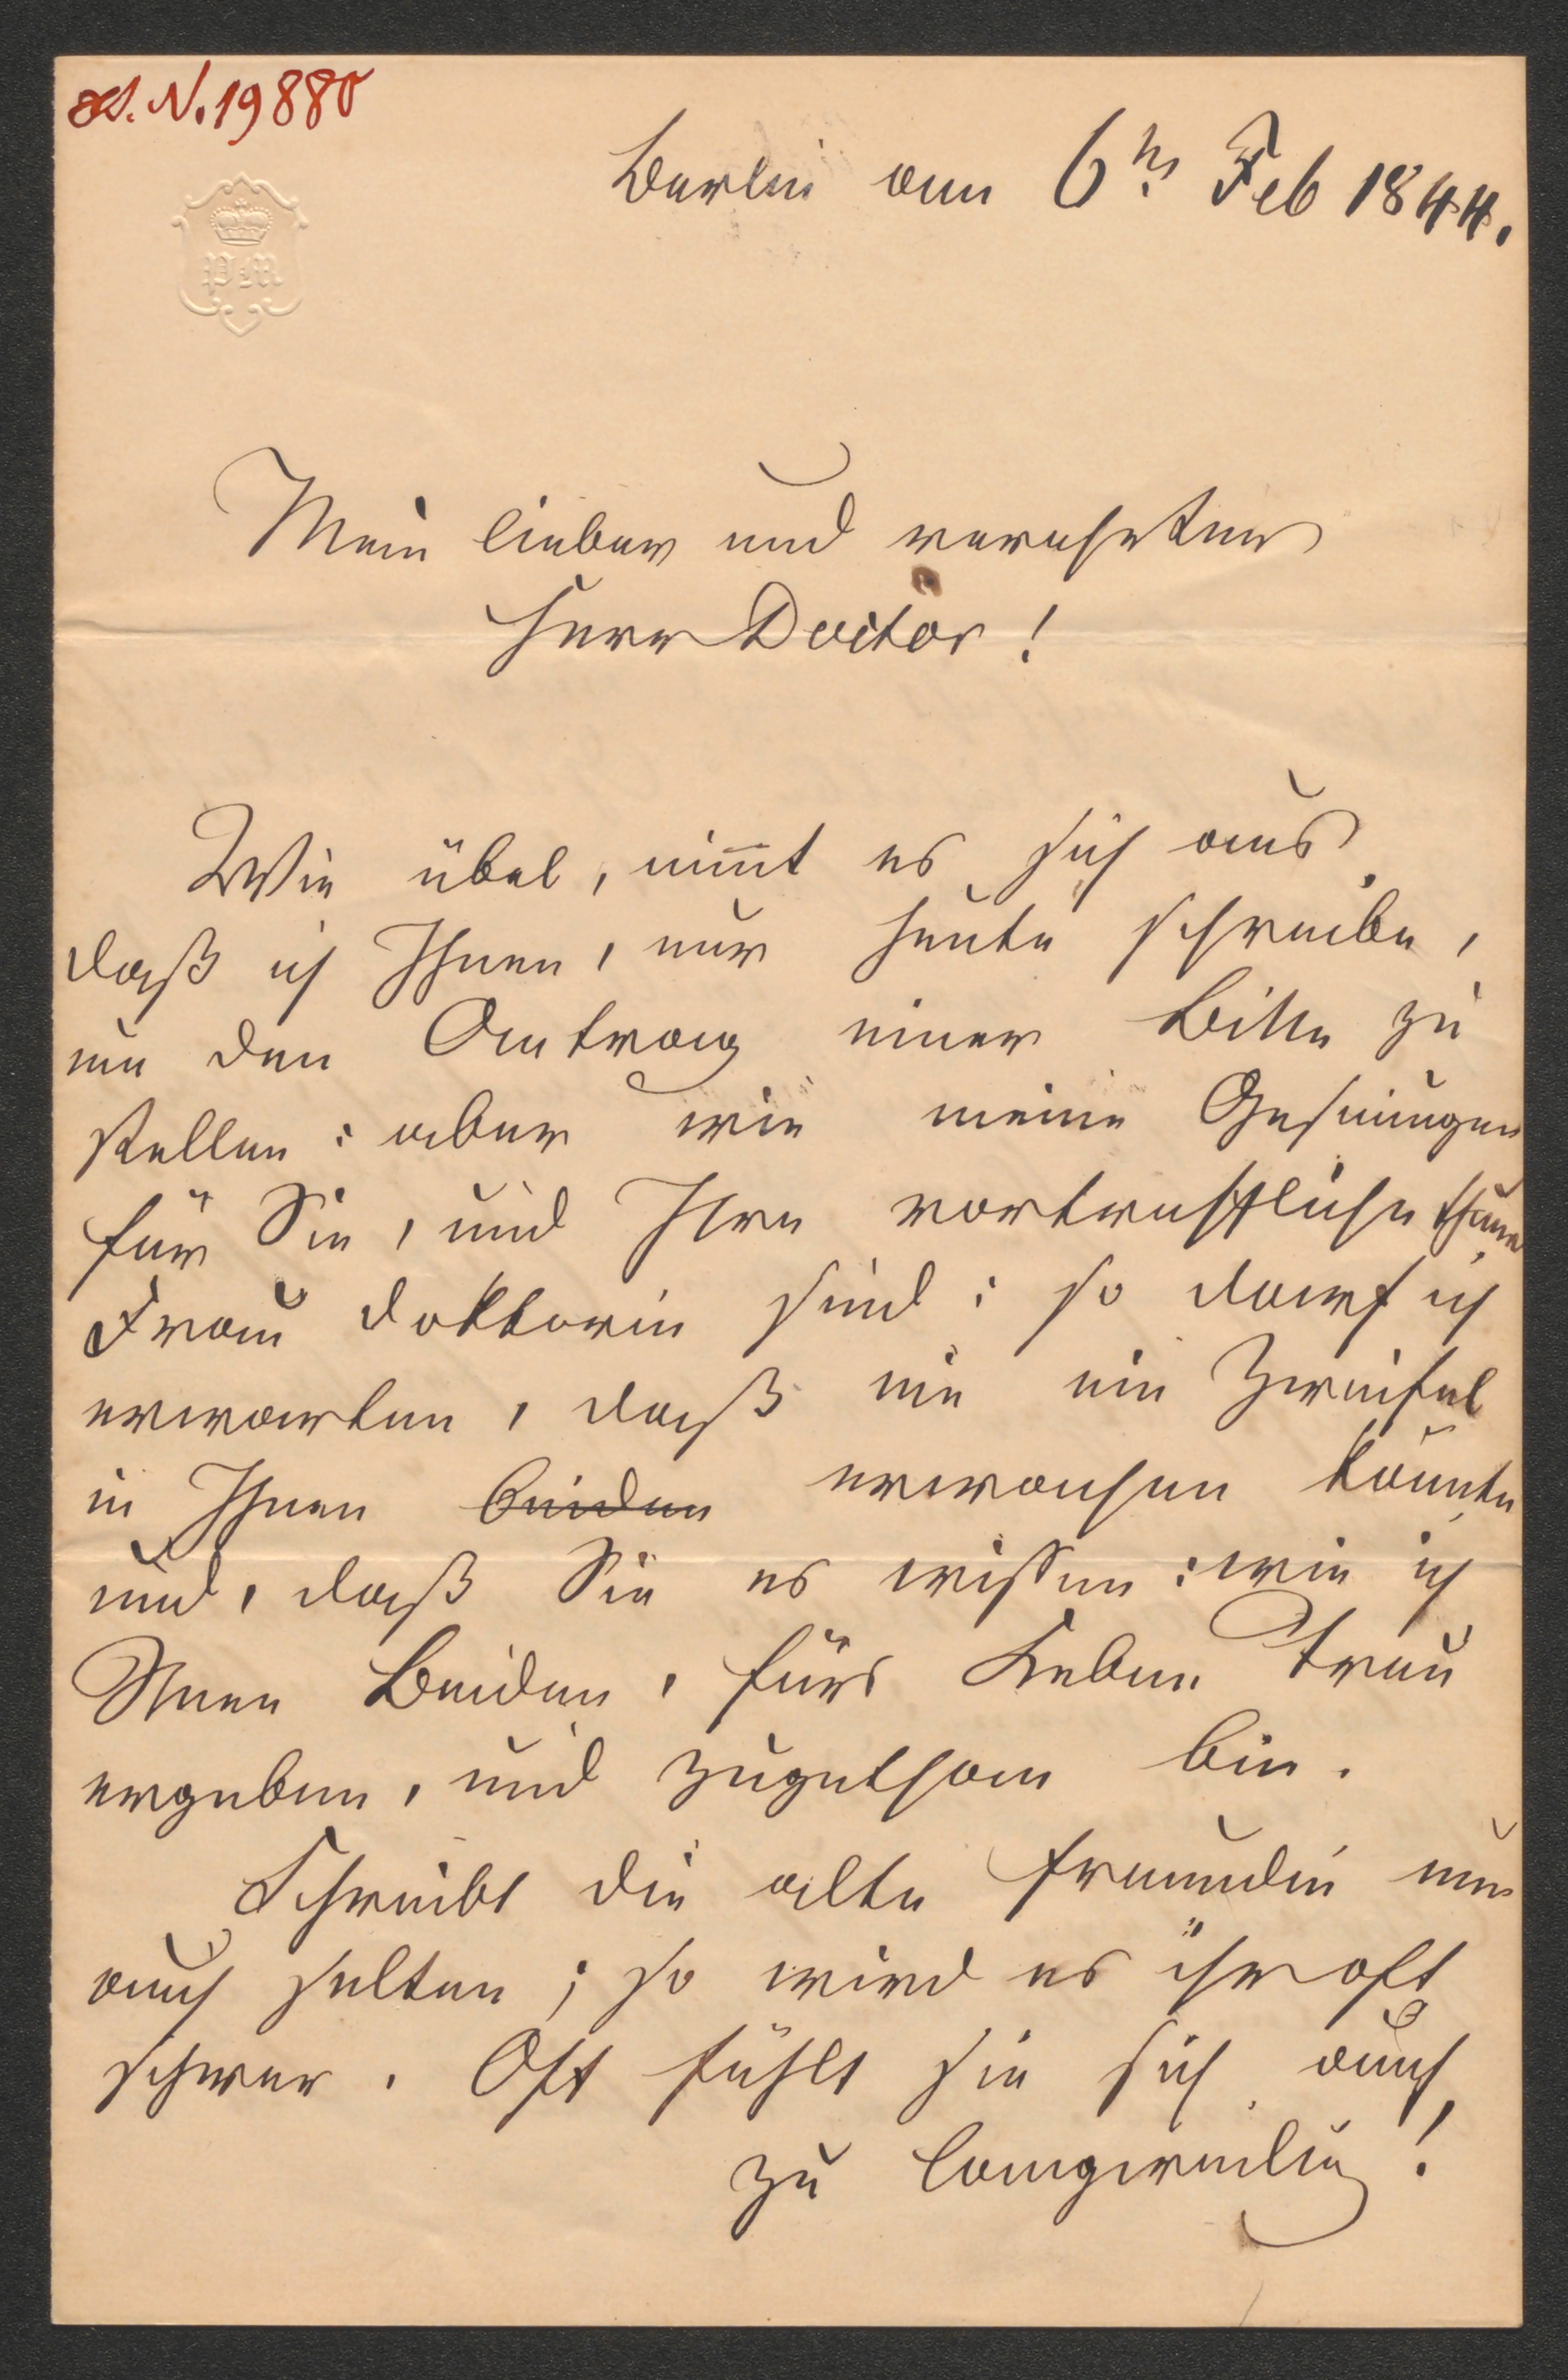 H. N. 19880
P M.
Berlin am 6ts Feb 1844.
Mein lieber und verehrter
Herr Doctor!
Wie übel, nim̅t es sich aus,
daß ich Ihnen, nur heute schreibe,
um den Antrag einer Bitte zu
stellen: aber wie meine Gesinungen
für Sie, und Ihre vortreffliche theure
Frau Doktorin sind: so darf ich
erwarten, daß nie ein Zweifel
in Ihnen beiden erwachsen könnte
und, daß Sie es wissen: wie ich
Ihnen Beiden, fürs Leben treu
ergeben, und zugethan bin.
Schreibt die alte Freundin nun
auch selten; so wird es ihr oft
schwer. Oft fühlt sie sich auch,
zu langweilig!